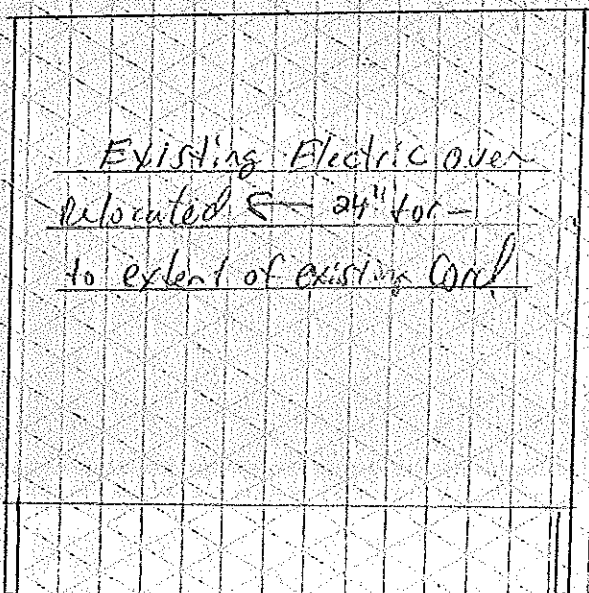 Existing Electric oven
Relocated ← 24" for -
to extent of existing Cord